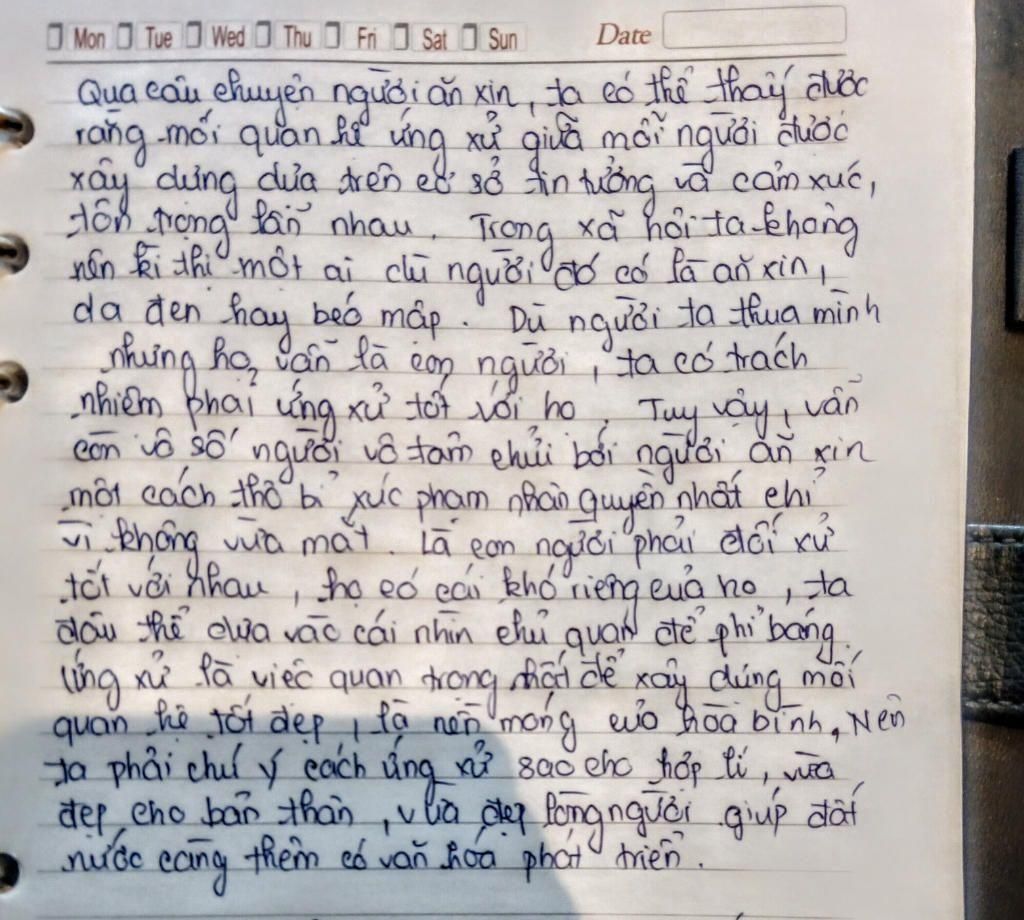 Mon Tue Wed Thu Fri Sat Sun Date
Qua câu chuyện người ăn xin, ta có thể thấy được
rằng mối quan hệ ứng xử giữa mỗi người được
xây dựng dựa trên cơ sở tin tưởng và cảm xúc,
tôn trọng lẫn nhau. Trong xã hội ta không
nên kì thị một ai dù người đó có là ăn xin,
da đen hay béo mập. Dù người ta thua mình
nhưng họ vẫn là con người, ta có trách
nhiệm phải ứng xử tốt với họ. Tuy vậy, vẫn
còn vô số người vô tâm chửi bới người ăn xin
một cách thô bỉ xúc phạm nhân quyền nhất chỉ
vì không vừa mắt. Là con người phải đối xử
tốt với nhau, họ có cái khó riêng của họ, ta
đâu thể dựa vào cái nhìn chủ quan để phỉ báng.
Ứng xử là việc quan trọng nhất để xây dựng mối
quan hệ tốt đẹp, là nền móng của hòa bình, Nên
ta phải chú ý cách ứng xử sao cho hợp lí, vừa
đẹp cho bản thân, vừa đẹp lòng người giúp đất
nước càng thêm có văn hóa phát triển.